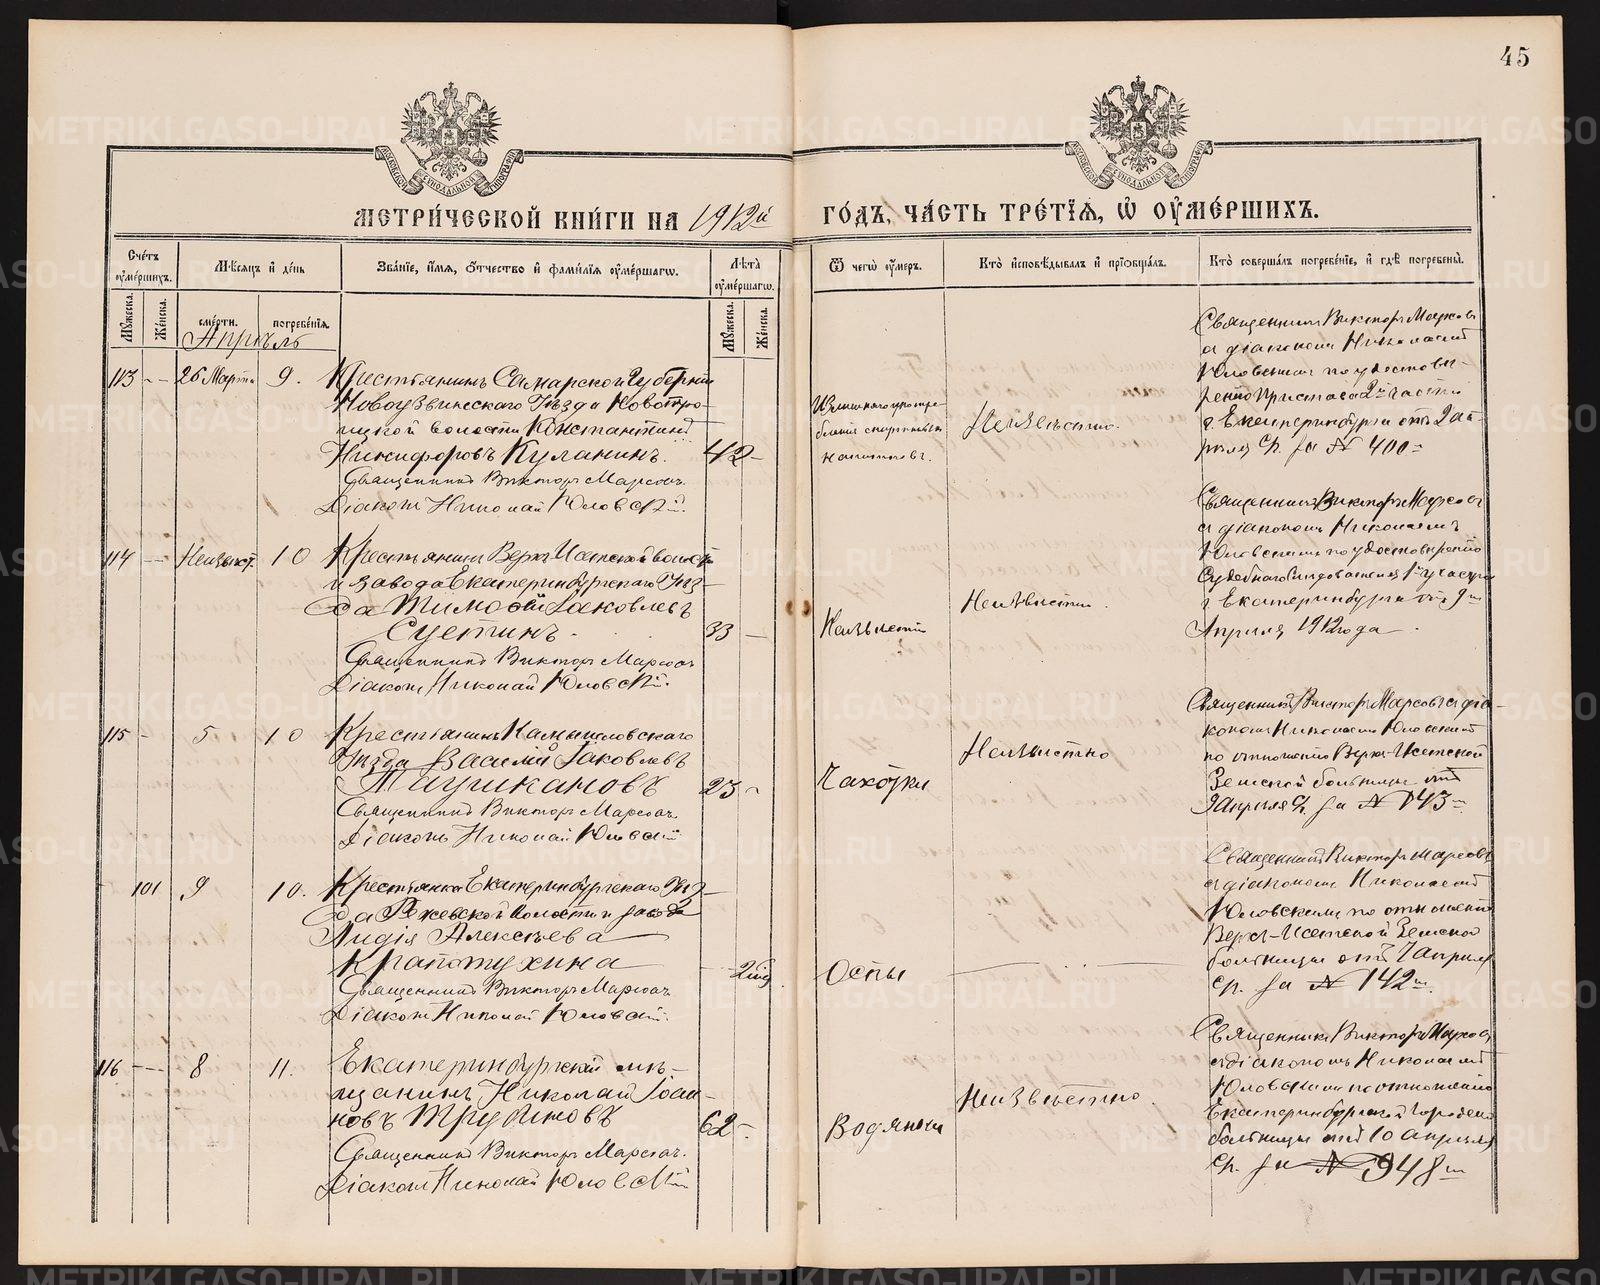 45
МЕТРИ́ЧЕСКОЙ КНИ́ГИ НА 1912й ГО́ДЪ, ЧА́СТЬ ТРЕ́ТЇѦ, Ѡ҆ ОУ҆МЕ́РШИХЪ.
Сче́тъ оу҆ме́ршихъ.
Мѣ́сѧцъ и҆ де́нь
Зва́нїе, и҆́мѧ, ѻ҆́тчество и҆ фами́лїѧ оу҆ме́ршагѡ.
Лѣ́та оу҆ме́ршагѡ.
Ѿ чегѡ̀ оу҆́меръ.
Кто̀ и҆сповѣ́дывалъ и҆ прїѡбща́лъ.
Кто̀ соверша́лъ погребе́нїе, и҆ гдѣ̀ погребены̀.
Мꙋ́жеска.
Же́нска.
сме́рти.
погребе́нїѧ.
Мꙋ́жеска.
Же́нска.
Апрѣль
113 26 Марта 9.
Крестьянинъ Самарской Губерніи
Новоузенскаго Уѣзда Новотро-
ицкой волости Константинъ
Никифоровъ Куланинъ. 42
Священникъ Викторъ Марсовъ
Діаконъ Николай Юловскій.
Излишняго употре-
бленія спиртныхъ
напитковъ.
Неизвѣстно.
Священникъ Викторъ Марсовъ
и діакономъ Николаемъ
Юловскимъ по удостовѣ-
ренію Пристава 2й части
г. Екатеринбурга отъ 2 ап-
рѣля с/г. за № 400
114 Неизвѣст. 10
Крестьянинъ Верхъ Исетской волости
и завода Екатеринбургскаго Уѣз-
да Тимоѳей Іаковлевъ
Суетинъ. 33
Священникъ Викторъ Марсовъ
Діаконъ Николай Юловскій.
Неизвѣстно
Неизвѣстно.
Священникъ Викторъ Марсовъ
и діакономъ Николаемъ
Юловскимъ по удостовѣренію
Судебнаго Слѣдователя 1 участка
г. Екатеринбурга отъ 9го
Апрѣля 1912 года
115 5 10
Крестьянинъ Камышловскаго
Уѣзда Василій Іаковлевъ
23
Священникъ Викторъ Марсовъ
Діаконъ Николай Юловскій
Чахотки
Неизвѣстно
Священникъ Викторъ Марсовъ и діа-
кономъ Николаемъ Юловскимъ
по отношенію Верхъ-Исетской
Земской больницы отъ
9 Апрѣля с/г. за № 143
101 9 10.
Крестьянка Екатеринбургскаго Уѣз-
да Режевской волости и завода
Лидія Алексѣева
Крапотухина
Священникъ Викторъ Марсовъ
Діаконъ Николай Юловскій.
Оспы
Священникъ Викторъ Марсовъ
и діакономъ Николаемъ
Юловскимъ по отношенію
Верхъ-Исетской Земской
больницы отъ 7 апрѣля
с/г. за № 142
116 8 11.
Екатеринбургскій мѣ-
щанинъ Николай Іоан-
новъ 62
Священникъ Викторъ Марсовъ.
Діаконъ Николай Юловскій
Водянки
Неизвѣстно.
Священникъ Викторъ Марсовъ
и діакономъ Николаемъ
Юловскимъ по отношенію
Екатеринбургской Городской
больницы отъ 10 апрѣля
с/г. за № 948
METRIKI.GASO-URAL.RU